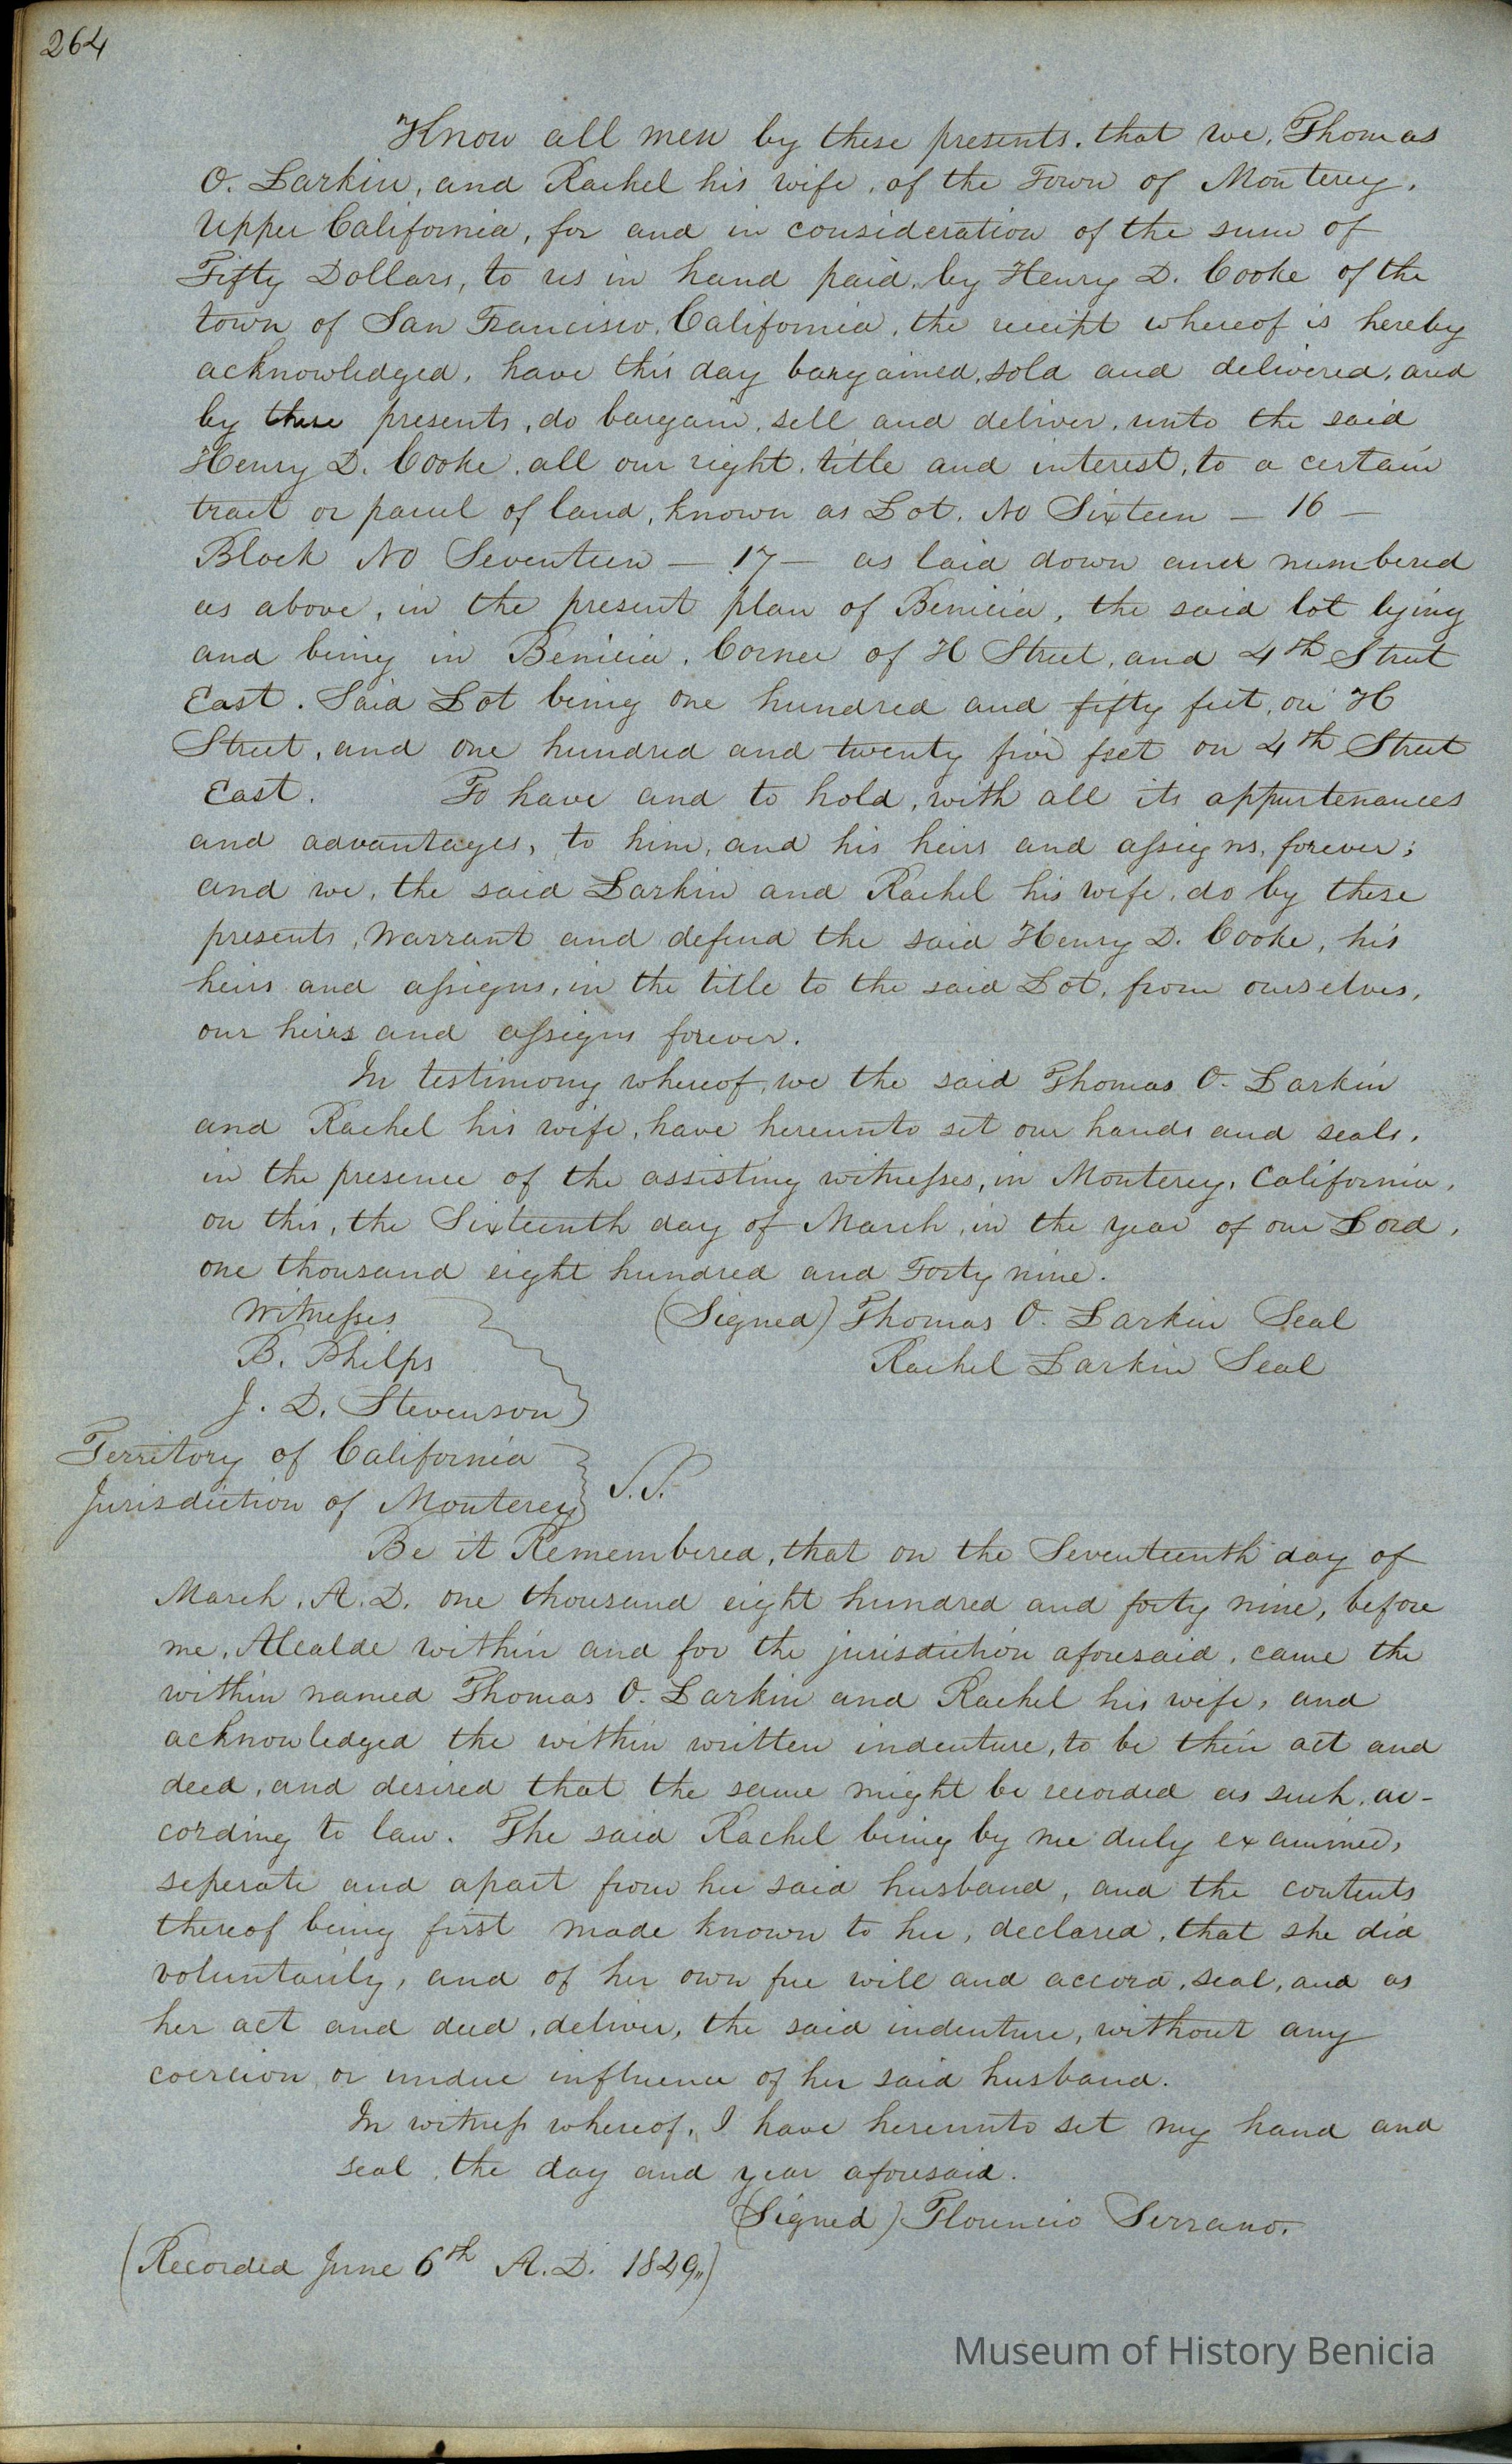 264
Know all men by these presents, that we, Thomas
O. Larkin, and Rachel his wife, of the Town of Monterey,
Upper California, for and in consideration of the sum of
Fifty Dollars, to us in hand paid, by Henry D. Cooke of the
town of San Francisco, California, the receipt whereof is hereby
acknowledged, have this day bargained, sold and delivered, and
by these presents, do bargain, sell and deliver, unto the said
Henry D. Cooke, all our right, title and interest, to a certain
tract or parcel of land, known as Lot, No Sixteen — 16 —
Block No Seventeen — 17 — as laid down and numbered
as above, in the present plan of Benicia, the said lot lying
and being in Benicia, Corner of H Street, and 4th Street
East. Said Lot being one hundred and fifty feet, on H
Street, and one hundred and twenty five feet on 4th Street
East. To have and to hold, with all its appurtenances
and advantages, to him, and his heirs and assigns, forever;
and we, the said Larkin and Rachel his wife, do by these
presents, Warrant and defend the said Henry D. Cooke, his
heirs and assigns, in the title to the said Lot, from ourselves,
our heirs and assigns forever.
In testimony whereof, we the said Thomas O. Larkin
and Rachel his wife, have hereunto set our hands and seals,
in the presence of the assisting witnesses, in Monterey, California,
on this, the Sixteenth day of March, in the year of our Lord,
one thousand eight hundred and Forty nine.
Witnesses (Signed) Thomas O. Larkin Seal
B. Philps Rachel Larkin Seal
J. D. Stevenson
Territory of California
Jurisdiction of Monterey } S.S.
Be it Remembered, that on the Seventeenth day of
March, A.D. one thousand eight hundred and forty nine, before
me, Alcalde within and for the jurisdiction aforesaid, came the
within named Thomas O. Larkin and Rachel his wife, and
acknowledged the within written indenture, to be their act and
deed, and desired that the same might be recorded as such, ac-
cording to law. The said Rachel being by me duly examined,
seperate and apart from her said husband, and the contents
thereof being first made known to her, declared, that she did
voluntarily, and of her own free will and accord, seal, and as
her act and deed, deliver, the said indenture, without any
coercion, or undue influence of her said husband.
In witness whereof, I have hereunto set my hand and
seal, the day and year aforesaid.
(Signed) Florencio Serrano.
(Recorded June 6th A.D. 1849,,)
Museum of History Benicia